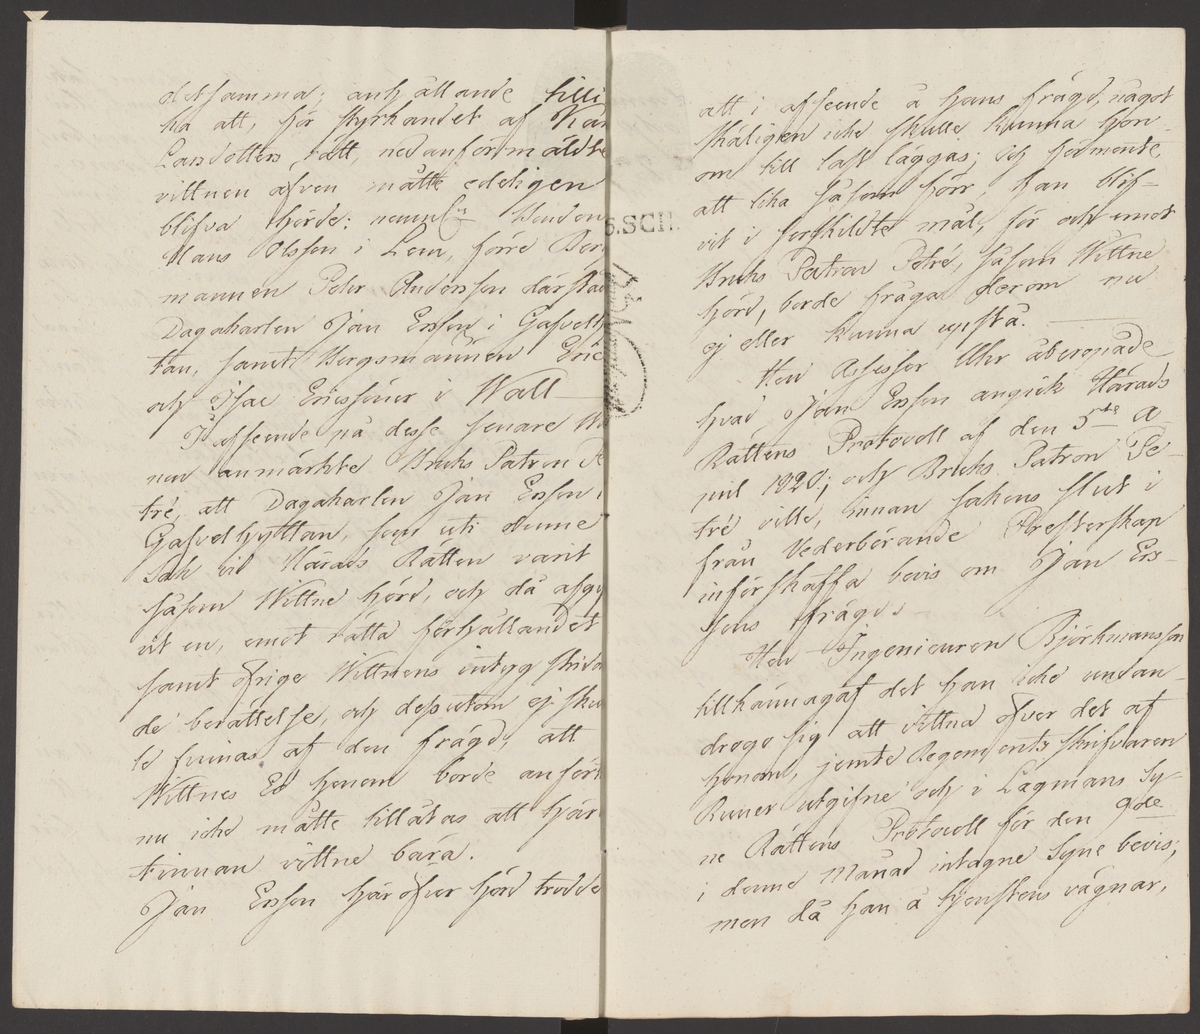 detsamma; anhållande tilli
ka att, för styrkandet af Kar
Larsdotters rätt, nedanförmäldte
vittnen äfven måtte edeligen
blifva hörde: nemln Bonden
Hans Olsson i Lem, förre Ber
mannen Pehr Andersson därstäd
Dagakarlen Jan Ersson i Gafvelhy
tan, samt Bergsmännen Eric
och Isac Ericssöner i Wall
I afseende på desse senare Wit
nen anmärkte Bruks Patron Pe
tré, att Dagakarlen Jan Ersson i
Gafvelhyttan, som uti denne
Sak vid Härads Rätten varit
såsom Wittne hörd, och då afgif
vit en, emot rätta förhållandet
samt öfrige Wittnens intyg strida
de berättelse, och dessutom ej skul
le finnas af den frägd, att
Wittnes Ed honom borde anför
nu icke måtte tillåtas att här
tinnan vittne bära.
Jan Ersson häröfver hörd trodde
6.SCH.
att i afseende å hans frägd, något
skäligen icke skulle kunna hon-
om till last läggas; och förmente,
att lika såsom förr, han blif-
vit i serskildte mål, för och emot
Bruks Patron Petré, såsom Wittne
hörd, borde fråga derom nu
ej eller kunna upstå.
Herr Assessor Uhr åberopade
hvad Jan Ersson angick Härads
Rättens Protocoll af den 5te A-
pril 1820; och Bruks Patron Pe-
tré ville, innan sakens slut i
från Vederbörande Presterskap
införskaffa bevis om Jan Ers-
sons frägd.
Herr Ingenieuren Björkmansson
tillkännagaf det han icke undan-
drogo sig att vittna öfver det af
honom, jemte Regements Skrifvaren
Runer utgifne och i Lagmans Sy-
ne Rättens Protocoll för den 9de
i denne Månad intagne Syne bevis;
men då han å tjenstens vägnar,